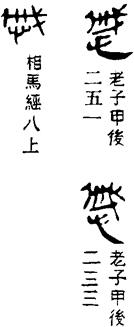 老子甲後
二五一
老子甲後
二三三
相馬經八上